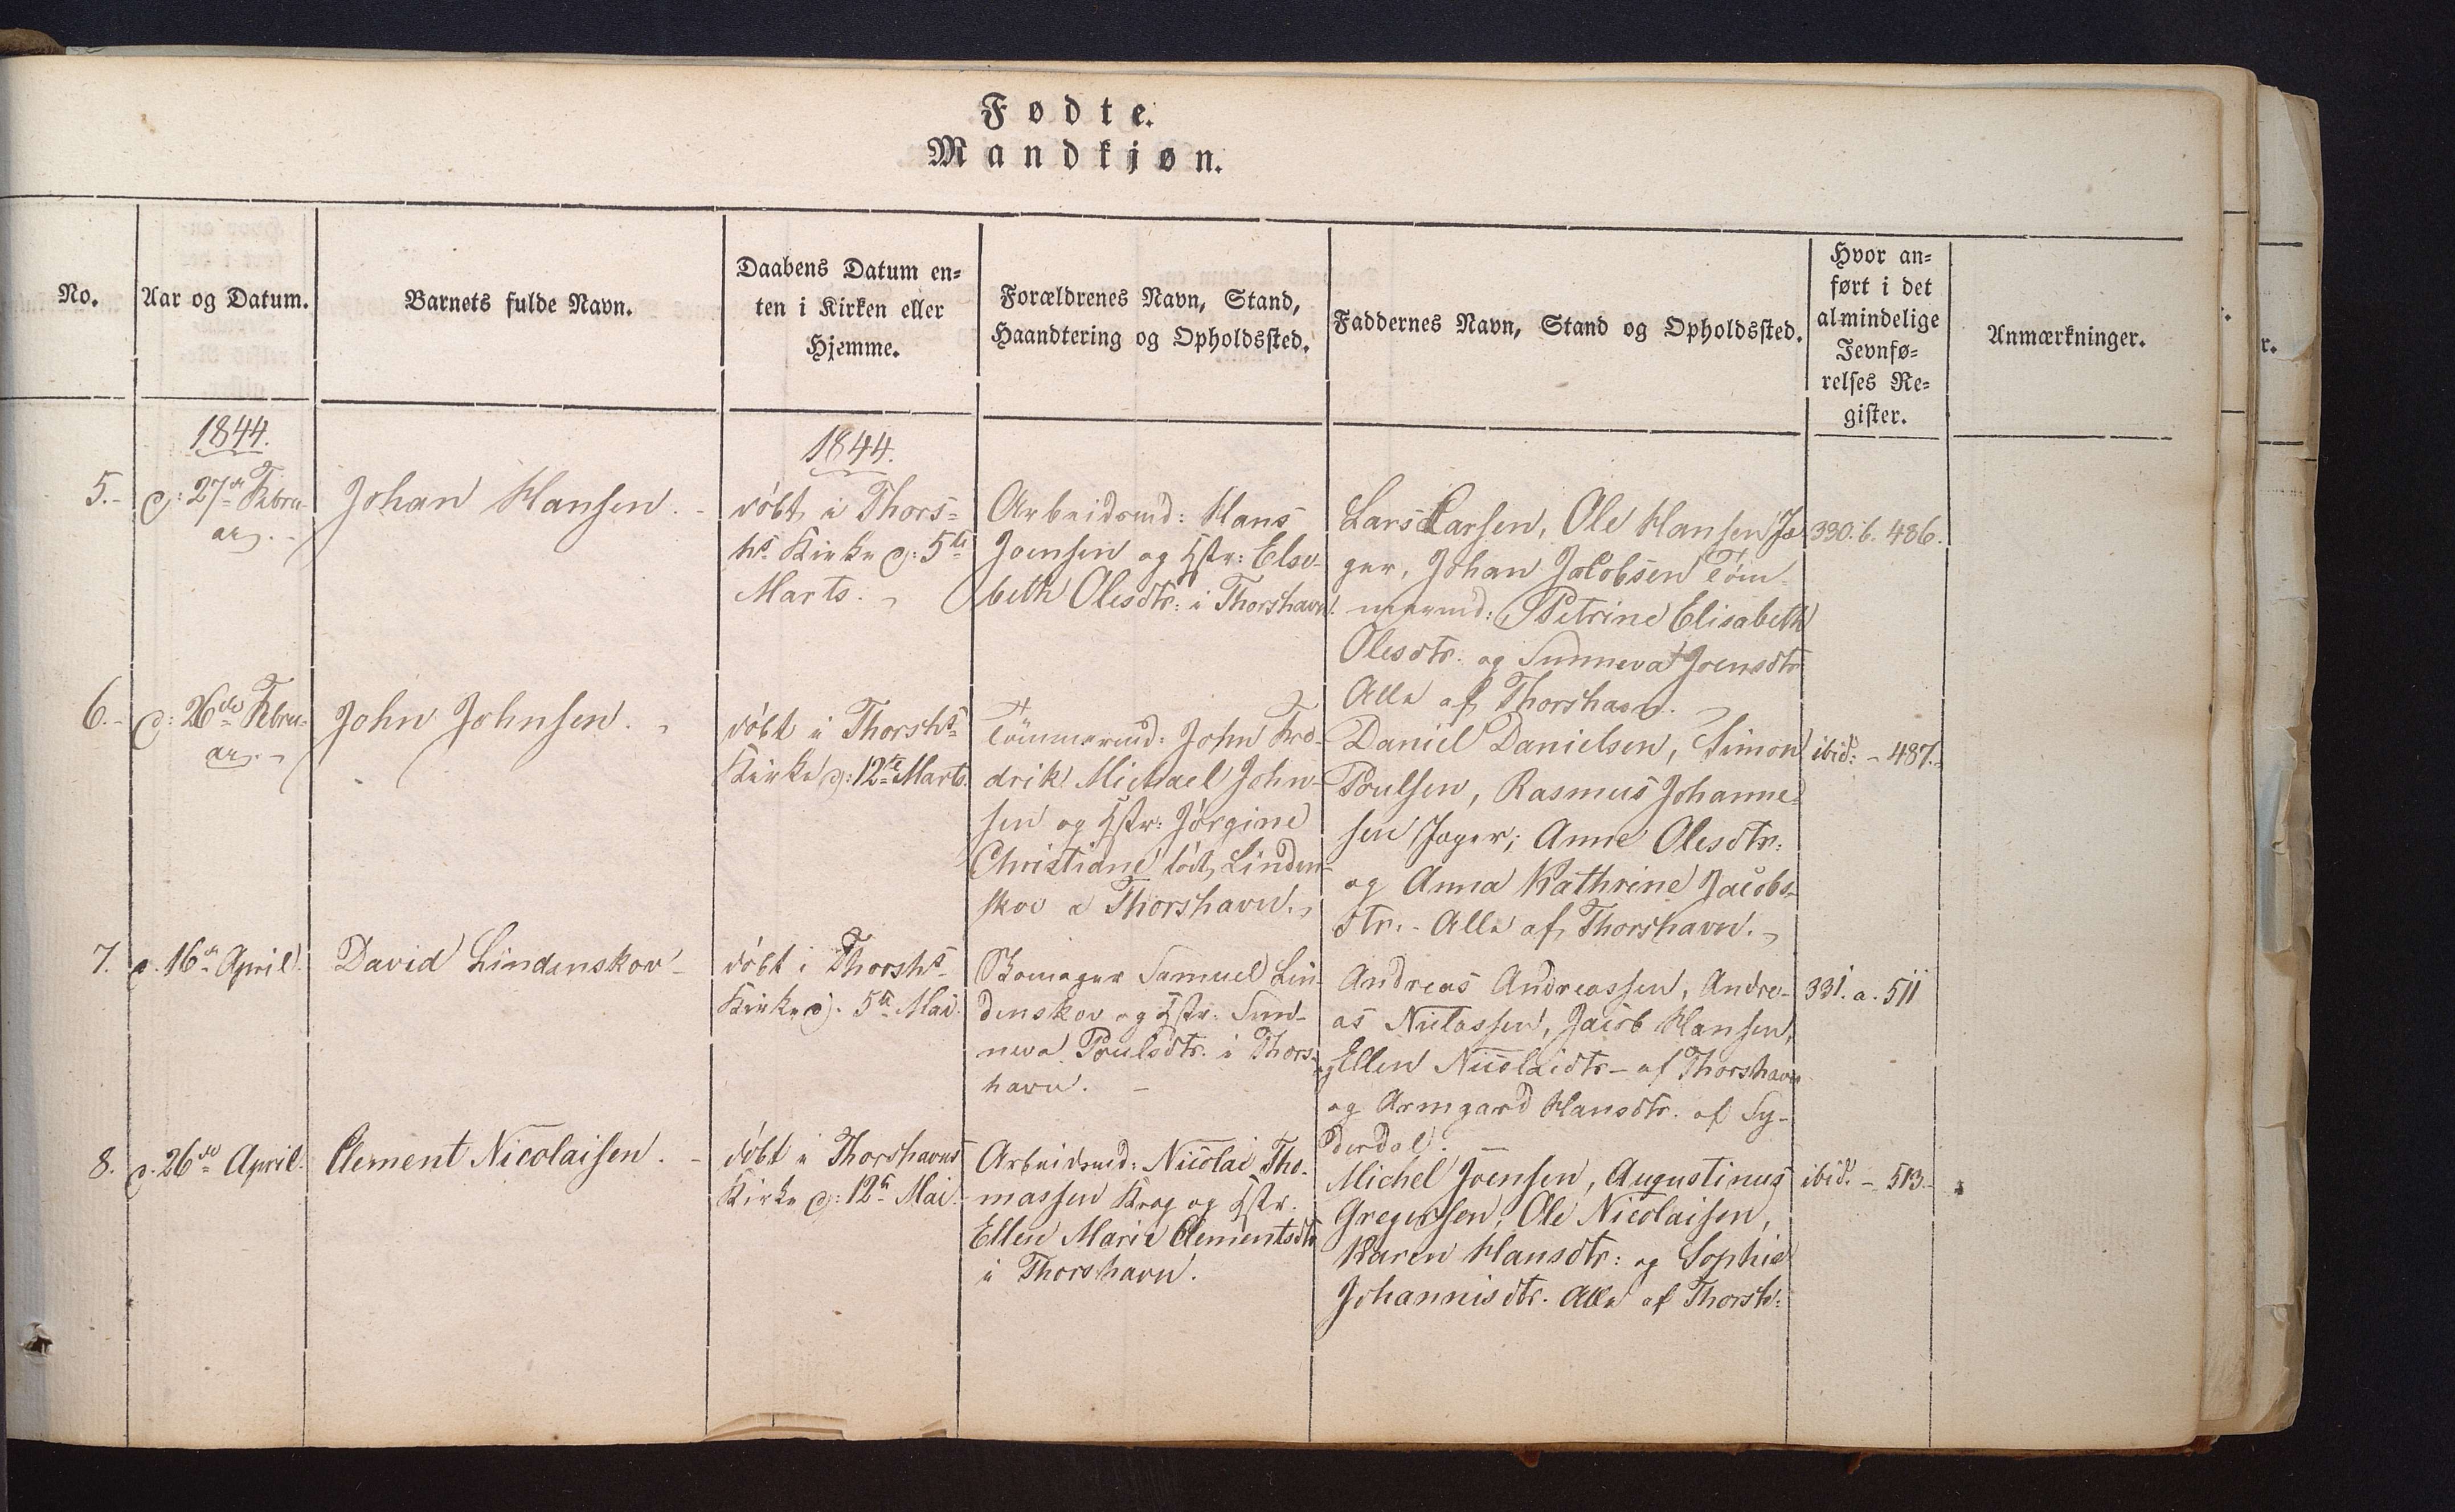 Fødte.
Mandkjøn.
No.
Aar og Datum.
Barnets fulde Navn.
Daabens Datum en-
ten i Kirken eller
Hjemme.
Forældrenes Navn, Stand,
Haandtering og Opholdssted.
Faddernes Navn, Stand og Opholdssted.
Hvor an-
ført i det
almindelige
Jevnfø-
relses Re-
gister.
Anmærkninger.
5.-
1844.
d: 27de Febru-
ar. -
Johan Hansen. -
1844.
døbt i Thors-
hs Kirke d: 5te
Marts. -
Arbeidsmd: Hans
Joensen og Hstr: Else-
beth Olesdtr: i Thorshavn.
Lars Larsen, Ole Hansen Jæ-
ger, Johan Jacobsen Tøm-
mermd: Petrine Elisabeth
Olesdtr. og Sunneva Joensdtr
Alle af Thorshavn. -
330. b. 486.
6.-
d: 26de Febru-
ar. -
John Johnsen. -
døbt i Thorshs
Kirke d: 12te Marts.
Tömmermd: John Fre-
drik Michael John-
sen og Hstr: Jörgine
Christiane föd Linden-
skov a Thorshavn. -
Daniel Danielsen, Simon
Poulsen, Rasmus Johanne-
sen Jæger; Anne Olesdtr:
og Anna Kathrine Jacobs-
dtr: - Alle af Thorshavn. -
ibid: - 487. -
7.
d. 16de April.
David Lindenskov -
døbt i Thorshs
Kirke d. 5te Mai.
Skomager Samuel Lin-
denskov og Hstr: Sun-
neva Poulsdtr. i Thors-
havn. -
Andreas Andreassen, Andre-
as Niclassen, Jacob Hansen,
Ellen Nicolaidtr - af Thorshavn
og Armgard Hansdtr. af Sy-
derdal.
331. a. 511
8.
d. 26de April.
Clement Nicolaisen. -
døbt i Thorshavns
Kirke d: 12te Mai.
Arbeidsmd: Nicolai Tho-
massen Krog og Hstr.
Ellen Marie Clementsdtr
i Thorshavn.
Michel Joensen, Augustinus
Gregersen, Ole Nicolaisen,
Karen Hansdtr: og Sophie
Johannisdtr. Alle af Thorsh:
ibid. - 513. -